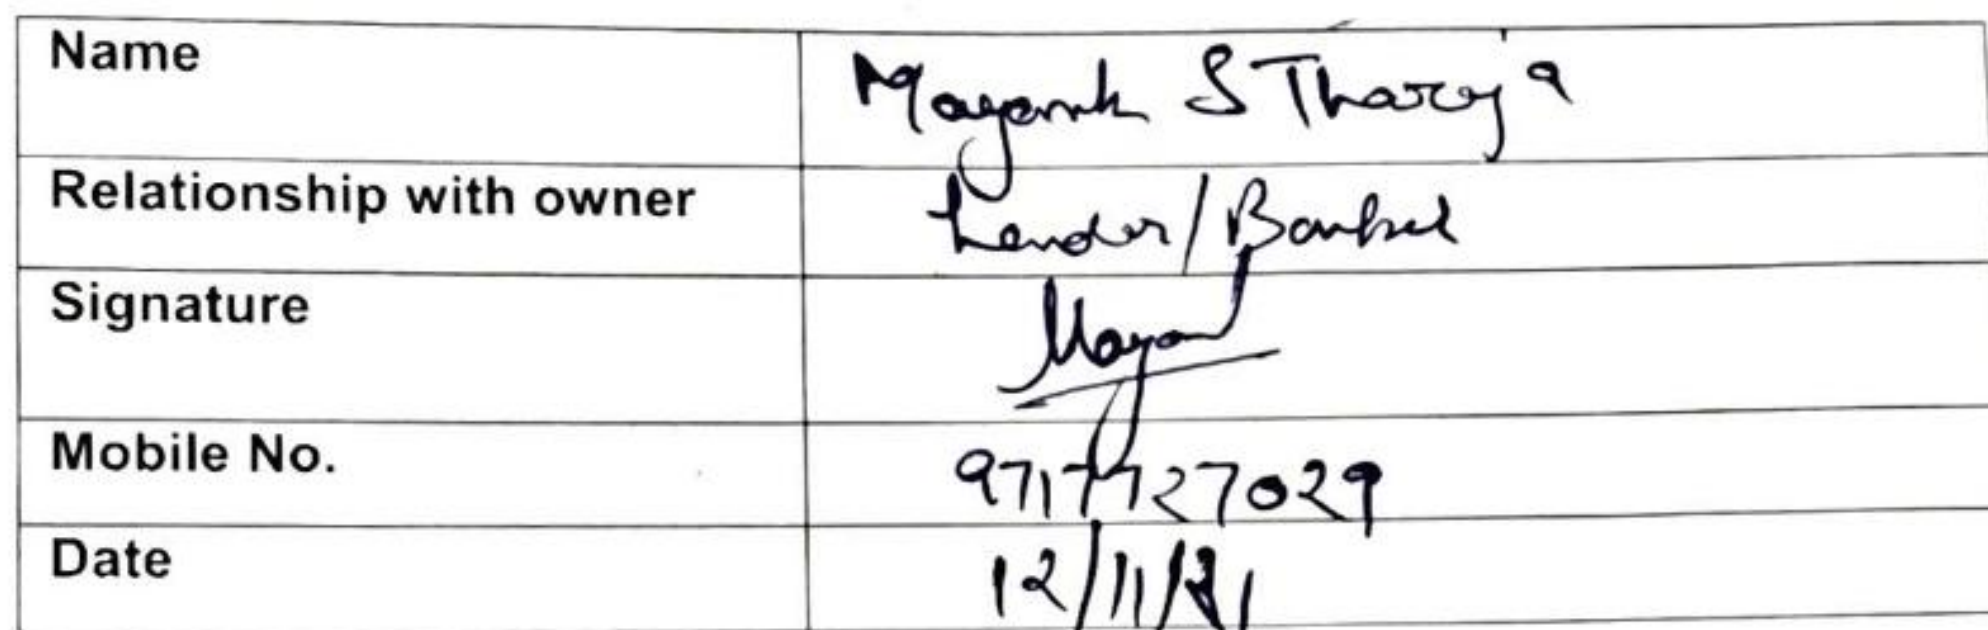 Name Mayank S Thareja
Relationship with owner Lender/Banker
Signature Mayank
Mobile No. 9717727029
Date 12/11/21